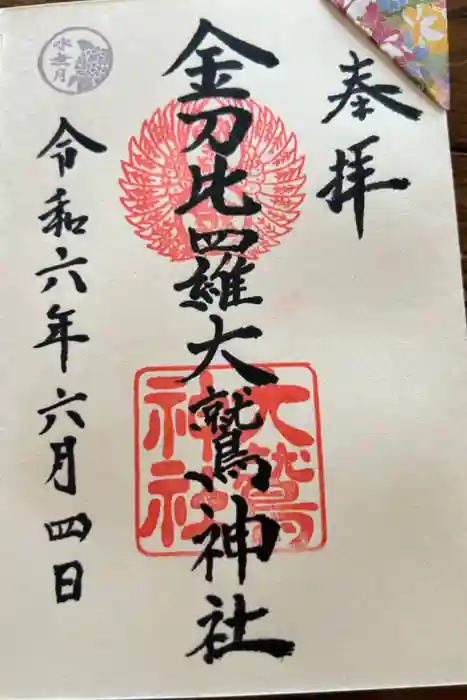 奉拝
金刀比羅大鷲神社
大鷲
神社
令和六年六月四日
水無月